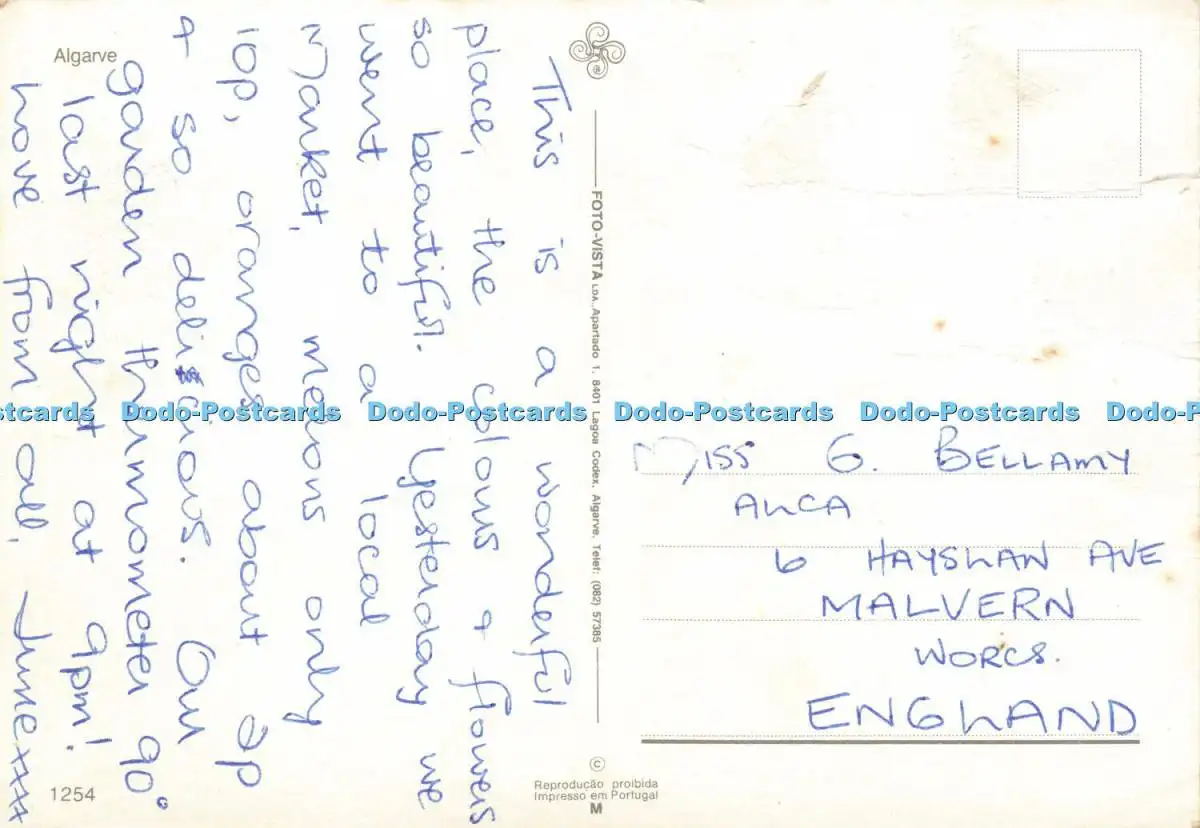 Algarve
This is a wonderful
place, the colours & flowers
so beautiful. Yesterday we
went to a local
Market, melons only
10p, oranges about 2p
& so delicious. Our
garden thurmometer 90°
last night at 9pm!
love from all, June xxxx
1254
FOTO-VISTA LDA., Apartado 1. 8401 Lagoa Codex. Algarve. Telef: (082) 57385
©
Reprodução proibida
Impresso em Portugal
M
MISS G. BELLAMY
6 HAYSLAN AVE
MALVERN
WORCS.
ENGLAND
Dodo-Postcards Dodo-Postcards Dodo-Postcards Dodo-Postcards